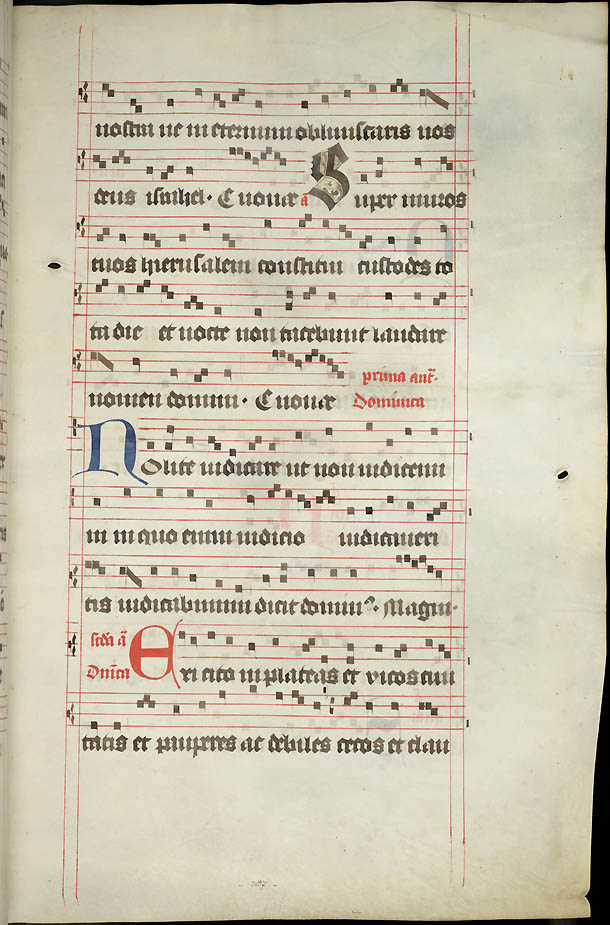 nostri ne in eternum obliuiscaris nos
deus israhel. Euouae ā Super muros
tuos hierusalem constitui custodes to
ta die et nocte non tacebunt laudare
nomen domini. Euouae prima ant̄.
Dominica
Nolite iudicare ut non iudicemi
ni in quo enim iudicio iudicaueri
tis iudicabimini dicit dominꝰ. Magni
scd̄a ā Exi cito in plateas et vicos ciui
Dn̄ica
tatis et pauperes ac debiles cecos et clau